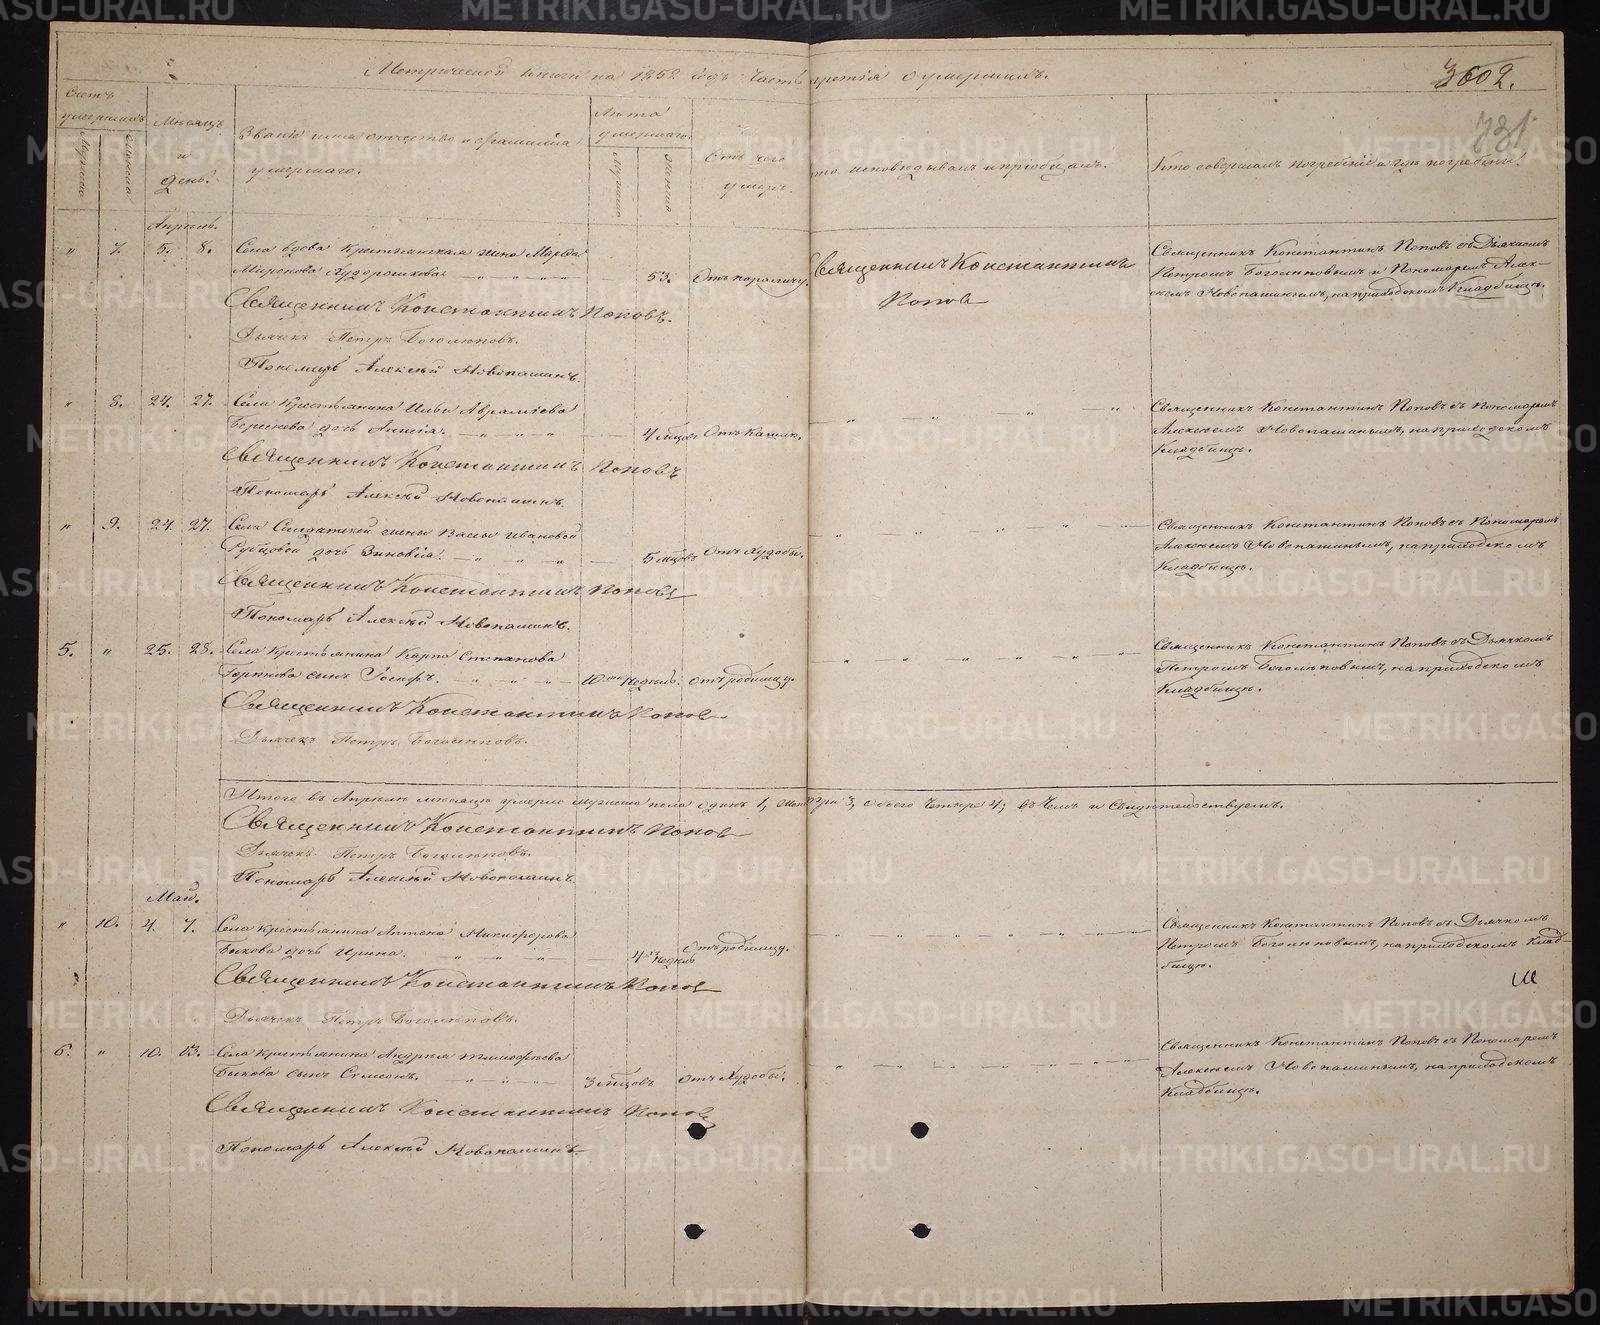 Метрической книги на 1852 годъ часть третія о умершихъ.
3602.
731
Счетъ умершихъ
Мужеска
Женска
Мѣсяцъ и день.
Званіе имя отчество и фамилія умершаго.
Лѣта умершаго.
Мужеска
Женска
Отъ чего умеръ.
Кто исповѣдывалъ и пріобщалъ.
Кто совершалъ погребеніе и гдѣ погребены?
Апрѣль.
" 7. 5. 8. Села вдова крестьянская жена Марѳа
Миронова 53. Отъ параличу. Священникъ Константинъ Поповъ
Священникъ Константинъ Поповъ съ Дьячкомъ
Петромъ Боголюповымъ и Пономаремъ Алек-
сѣемъ Новопашинымъ, на приходскомъ Кладбищѣ.
Священникъ Константинъ Поповъ.
Дьячекъ Петръ Боголюповъ.
Пономарь Алексѣй Новопашинъ.
" 8. 24. 27. Села Крестьянина Ильи Аврамьева
дочь 4 мѣцовъ Отъ Кашля.
Священникъ Константинъ Поповъ съ Пономаремъ
Алексѣемъ Новопашинымъ, на приходскомъ
Кладбищѣ.
Священникъ Константинъ Поповъ
Пономарь Алексѣй Новопашинъ.
" 9. 24. 27. Села Солдатской жены Вассы Ивановой
Рубцовой дочь Зиновія. 5 мѣцовъ Отъ Худобы.
Священникъ Константинъ Поповъ съ Пономаремъ
Алексѣемъ Новопашинымъ, на приходскомъ
Кладбищѣ.
Священникъ Константинъ Поповъ
Пономарь Алексѣй Новопашинъ.
5. " 25. 28. Села Крестьянина Карпа Степанова
сынъ Іосифъ. 10 недѣль. отъ родимцу.
Священникъ Константинъ Поповъ съ Дьячкомъ
Петромъ Боголюповымъ, на приходскомъ
Кладбищѣ.
Священникъ Константинъ Попов
Дьячекъ Петръ Боголюповъ.
Итого въ Апрѣлѣ мѣсяцѣ умерло мужеска пола одинъ 1, женска три 3, обоего четыре 4; въ чемъ и свидѣтельствуемъ.
Священникъ Константинъ Попов
Дьячекъ Петръ Боголюповъ.
Пономарь Алексѣй Новопашинъ.
Май.
" 10. 4. 7. Села крестьянина Антона Никифорова
Быкова дочь Ирина. 4 недѣль Отъ родимцу.
Священникъ Константинъ Поповъ съ Дьячкомъ
Петромъ Боголюповымъ, на приходскомъ Клад-
бищѣ.
Священникъ Константинъ Попов
Дьячекъ Петръ Боголюповъ.
6. " 10. 13. Села крестьянина Андрея Тимофѣева
Быкова сынъ Симеонъ. 3 мѣцовъ отъ Худобы.
Священникъ Константинъ Поповъ съ Пономаремъ
Алексѣемъ Новопашинымъ, на приходскомъ
Кладбищѣ.
Священникъ Константинъ Поповъ
Пономарь Алексѣй Новопашинъ.
METRIKI.GASO-URAL.RU